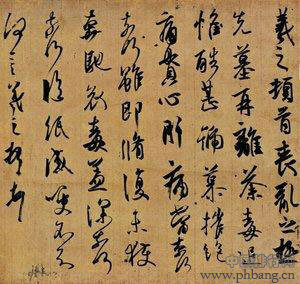 羲之頓首喪亂之極
先墓再離荼毒追
惟酷甚號慕摧絕
痛貫心肝痛當奈何
奈何雖即脩復未獲
奔馳哀毒益深奈何
奈何臨紙感哽不知
何言羲之頓首頓首
中国排行网
www.phbang.cn